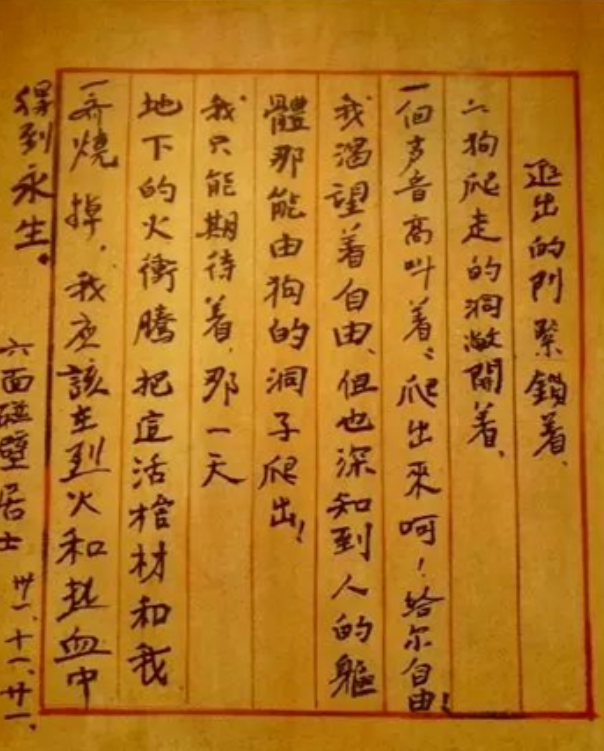 進出的門緊鎖着、
二狗爬走的洞敞開着、
一個声音高叫着：爬出來呵！給尔自由！
我渴望着自由、但也深知到人的軀
體那能由狗的洞子爬出！
我只能期待着、那一天
地下的火衝騰把這活棺材和我
一齊燒掉，我应該在烈火和热血中
得到永生。
六面碰壁居士 卅一、十一、廿一、